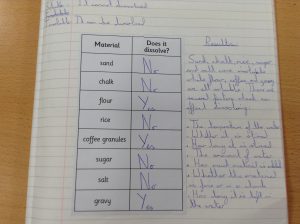 It can be dissolved
Results
Material Does it dissolve?
sand No
chalk No
flour Yes
rice No
coffee granules Yes
sugar No
salt No
gravy Yes
Sand, chalk, rice, sugar
and were insoluble
while flour, coffee and gravy
are all soluble. There are
several factors which can
affect dissolving.
• The temperature of the water
• Whether it is stirred
• How long it is stirred
• The amount of water
• How much material is added
• Whether the material
is fine or in a chunk
• How long it is left in
the water